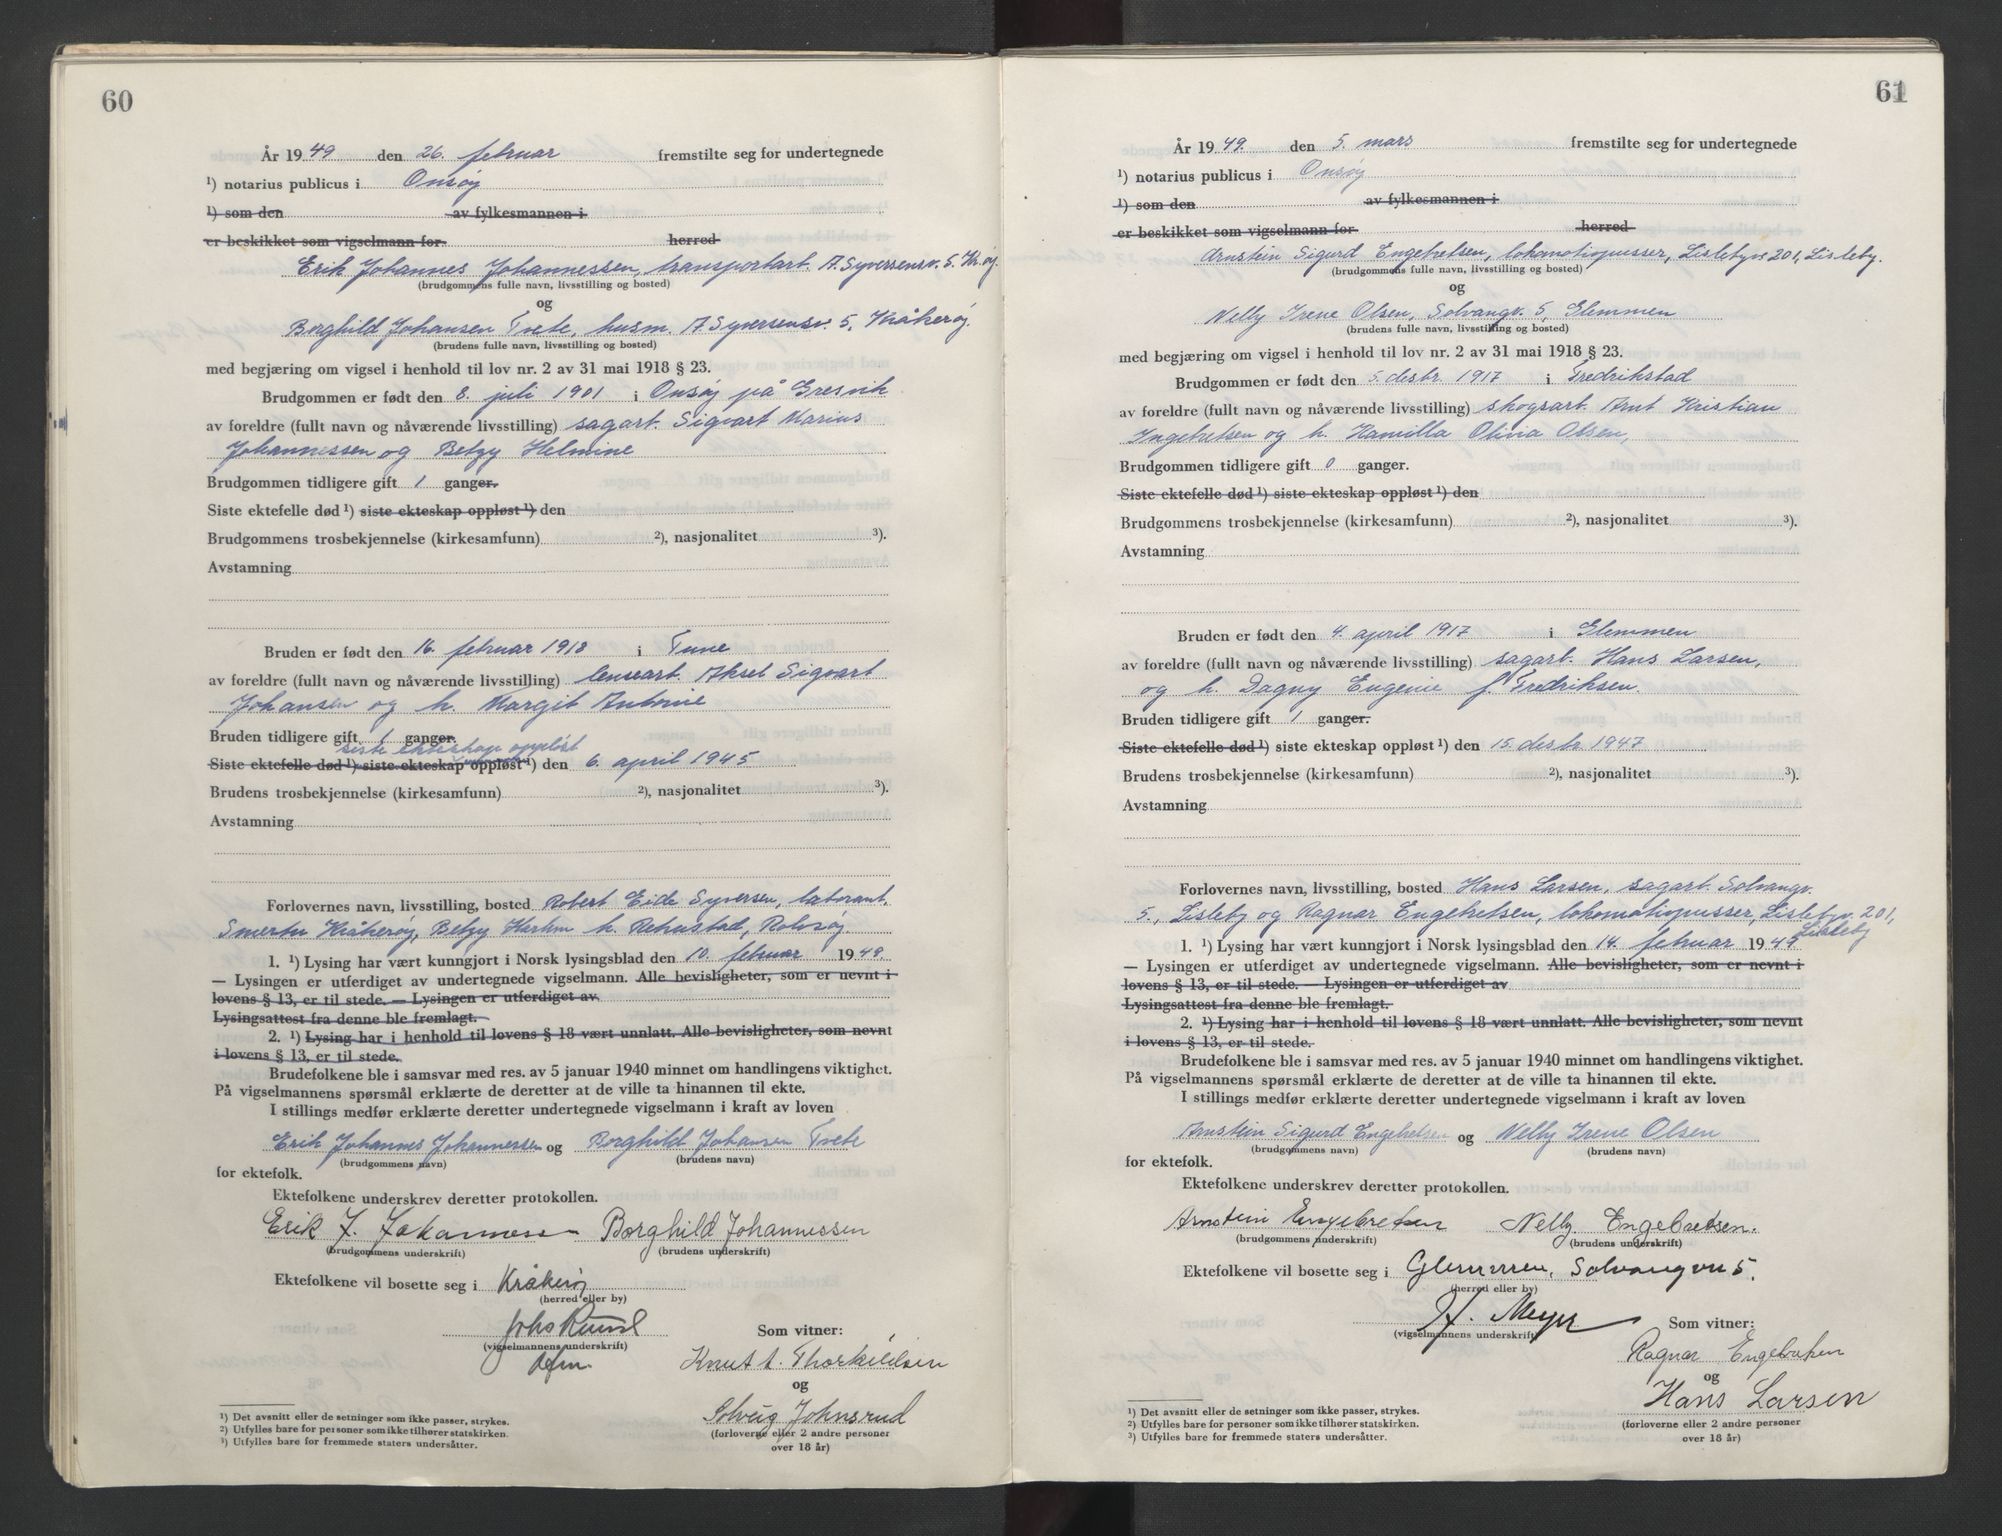 60
År 1949 den 26. februar fremstilte seg for undertegnede
¹) notarius publicus i Onsøy
¹) som den av fylkesmannen i
er beskikket som vigselmann for herred
Erik Johannes Johannessen, transportarb. A. Syversensv. 5. Kr.øy
(brudgommens fulle navn, livsstilling og bosted)
og
Borghild Johansen Tvete, husm. A Syversensv. 5, Kråkerøy.
(brudens fulle navn, livsstilling og bosted)
med begjæring om vigsel i henhold til lov nr. 2 av 31 mai 1918 § 23.
Brudgommen er født den 8. juli 1901 i Onsøy på Gresvik
av foreldre (fullt navn og nåværende livsstilling) sagarb. Sigvart Marius
Johannessen og Betzy Helmine
Brudgommen tidligere gift 1 ganger.
Siste ektefelle død ¹) siste ekteskap oppløst ¹) den
Brudgommens trosbekjennelse (kirkesamfunn) ²), nasjonalitet ³).
Avstamning
Bruden er født den 16. februar 1918 i Tune
av foreldre (fullt navn og nåværende livsstilling) lensearb. Aksel Sigvart
Johansen og h. Margit Antonie
Bruden tidligere gift 1 ganger.
siste ekteskap oppløst
Siste ektefelle død ¹) siste ekteskap oppløst ¹) den 6. april 1945
Brudens trosbekjennelse (kirkesamfunn) ²), nasjonalitet ³).
Avstamning
Forlovernes navn, livsstilling, bosted Robert Eide Syversen, laborant.
Smertu Kråkerøy, Betzy Harlem h. Rehustad, Rolvsøy
1. ¹) Lysing har vært kunngjort i Norsk lysingsblad den 10. februar 1949.
— Lysingen er utferdiget av undertegnede vigselmann. Alle bevisligheter, som er nevnt i
lovens § 13, er til stede. — Lysingen er utferdiget av
Lysingsattest fra denne ble fremlagt.
2. ¹) Lysing har i henhold til lovens § 18 vært unnlatt. Alle bevisligheter, som nevnt
i lovens § 13, er til stede.
Brudefolkene ble i samsvar med res. av 5 januar 1940 minnet om handlingens viktighet.
På vigselmannens spørsmål erklærte de deretter at de ville ta hinannen til ekte.
I stillings medfør erklærte deretter undertegnede vigselmann i kraft av loven
Erik Johannes Johannessen og Borghild Johansen Tvete
(brudgommens navn) (brudens navn)
for ektefolk.
Ektefolkene underskrev deretter protokollen.
Erik J. Johannessen Borghild Johannessen
(brudgommens underskrift) (brudens underskrift)
Ektefolkene vil bosette seg i Kråkerøy
(herred eller by)
Johs Ruud Som vitner:
(vigselmannens underskrift)
Knut A. Thorkildsen
og
Solveig Johnsrud
(forloverne eller 2 andre personer
over 18 år)
¹) Det avsnitt eller de setninger som ikke passer, strykes.
²) Utfylles bare for personer som ikke tilhører statskirken.
³) Utfylles bare for fremmede staters undersåtter.
61
År 1949. den 5. mars fremstilte seg for undertegnede
¹) notarius publicus i Onsøy
¹) som den av fylkesmannen i
er beskikket som vigselmann for herred
Arnstein Sigurd Engebretsen, lokomotivpusser, Lislebyv. 201, Lisleby.
(brudgommens fulle navn, livsstilling og bosted)
og
Nelly Irene Olsen, Solvangv. 5, Glemmen
(brudens fulle navn, livsstilling og bosted)
med begjæring om vigsel i henhold til lov nr. 2 av 31 mai 1918 § 23.
Brudgommen er født den 5. desbr. 1917 i Fredrikstad
av foreldre (fullt navn og nåværende livsstilling) skogsarb. Arnt Kristian
Ingebretsen og h. Kamilla Olivia Olsen,
Brudgommen tidligere gift 0 ganger.
Siste ektefelle død ¹) siste ekteskap oppløst ¹) den
Brudgommens trosbekjennelse (kirkesamfunn) ²), nasjonalitet ³).
Avstamning
Bruden er født den 4. april 1917 i Glemmen
av foreldre (fullt navn og nåværende livsstilling) sagarb. Hans Larsen,
og h. Dagny Eugenie f. Fredriksen.
Bruden tidligere gift 1 ganger.
Siste ektefelle død ¹) siste ekteskap oppløst ¹) den 15. desbr. 1947
Brudens trosbekjennelse (kirkesamfunn) ²), nasjonalitet ³).
Avstamning
Forlovernes navn, livsstilling, bosted Hans Larsen, sagarb. Solvangv.
5, Lisleby og Ragnar Engebretsen, lokomotivpusser, Lislebyv. 201,
Lisleby
1. ¹) Lysing har vært kunngjort i Norsk lysingsblad den 14. februar 1949.
— Lysingen er utferdiget av undertegnede vigselmann. Alle bevisligheter, som er nevnt i
lovens § 13, er til stede. — Lysingen er utferdiget av
Lysingsattest fra denne ble fremlagt.
2. ¹) Lysing har i henhold til lovens § 18 vært unnlatt. Alle bevisligheter, som nevnt
i lovens § 13, er til stede.
Brudefolkene ble i samsvar med res. av 5 januar 1940 minnet om handlingens viktighet.
På vigselmannens spørsmål erklærte de deretter at de ville ta hinannen til ekte.
I stillings medfør erklærte deretter undertegnede vigselmann i kraft av loven
Arnstein Sigurd Engebretsen og Nelly Irene Olsen
(brudgommens navn) (brudens navn)
for ektefolk.
Ektefolkene underskrev deretter protokollen.
Arnstein Engebretsen Nelly Engebretsen.
(brudgommens underskrift) (brudens underskrift)
Ektefolkene vil bosette seg i Glemmen, Solvangvn 5.
(herred eller by)
H. Meyer Som vitner:
(vigselmannens underskrift)
Ragnar Engebretsen
og
Hans Larsen
(forloverne eller 2 andre personer
over 18 år)
¹) Det avsnitt eller de setninger som ikke passer, strykes.
²) Utfylles bare for personer som ikke tilhører statskirken.
³) Utfylles bare for fremmede staters undersåtter.